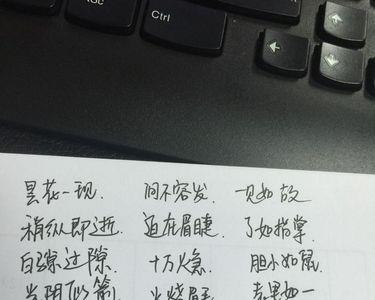 Alt
Gr
Ctrl
昙花一现. 间不容发. 一见如故
稍纵即逝. 迫在眉睫. 了如指掌
白驹过隙. 十万火急. 胆小如鼠.
光阴似箭 火烧眉毛 表里如一